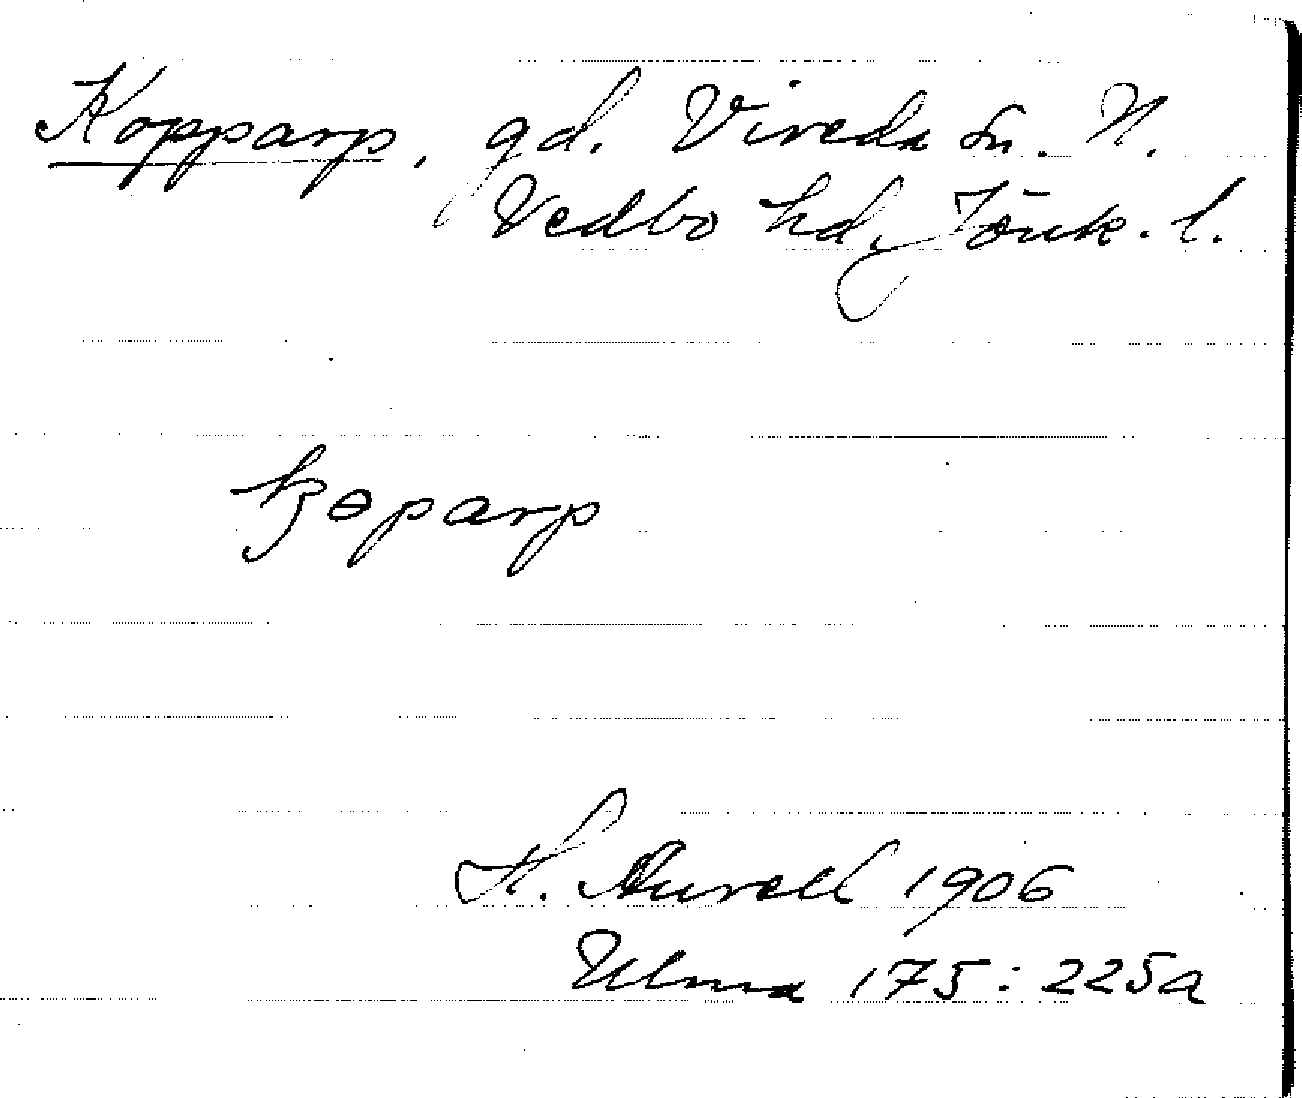 Kopparp, gd. Vireda sn. N.
Vedbo hd, Jönk. l.
kɵparp
H. Aurell 1906
Ulma 175:225a